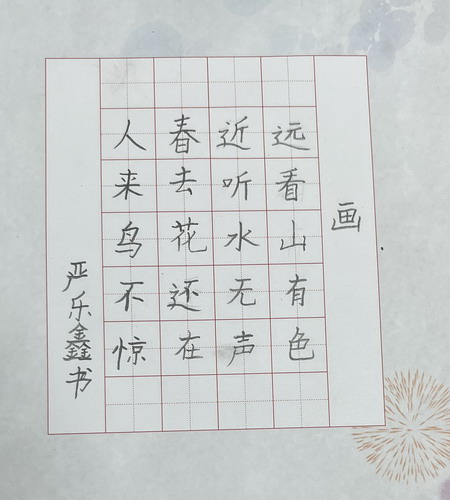 画
远看山有色
近听水无声
春去花还在
人来鸟不惊
严乐鑫书